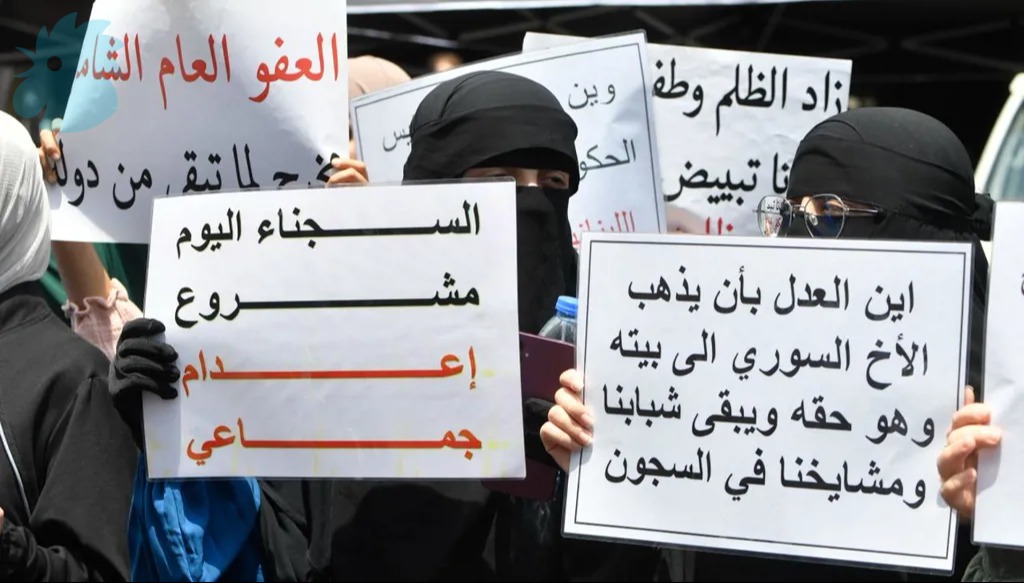 العفو العام
لما تبقى من دولة
وين
زاد الظلم
تبييض
السجناء اليوم
مشروع
إعدام
جماعي
اين العدل بأن يذهب
الأخ السوري الى بيته
وهو حقه ويبقى شبابنا
ومشايخنا في السجون